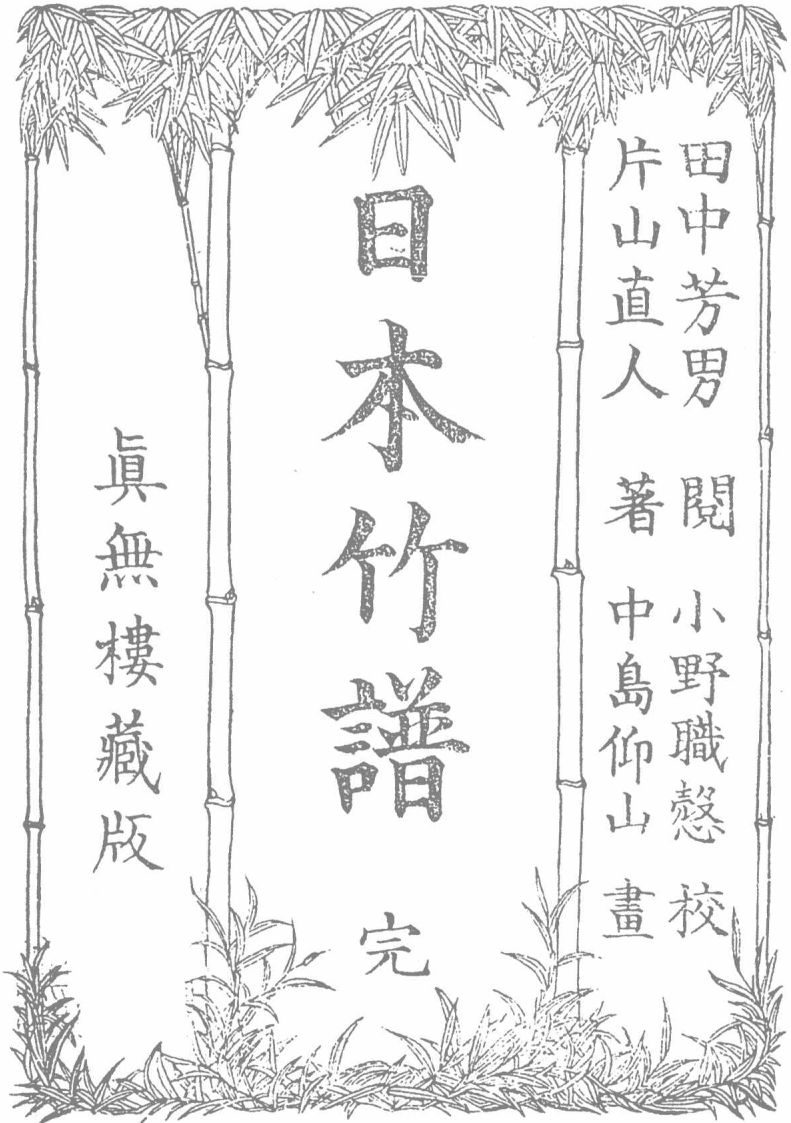 田中芳男 閱 小野職愨 校
片山直人 著 中島仰山 畫
日本竹譜 完
眞無樓藏版